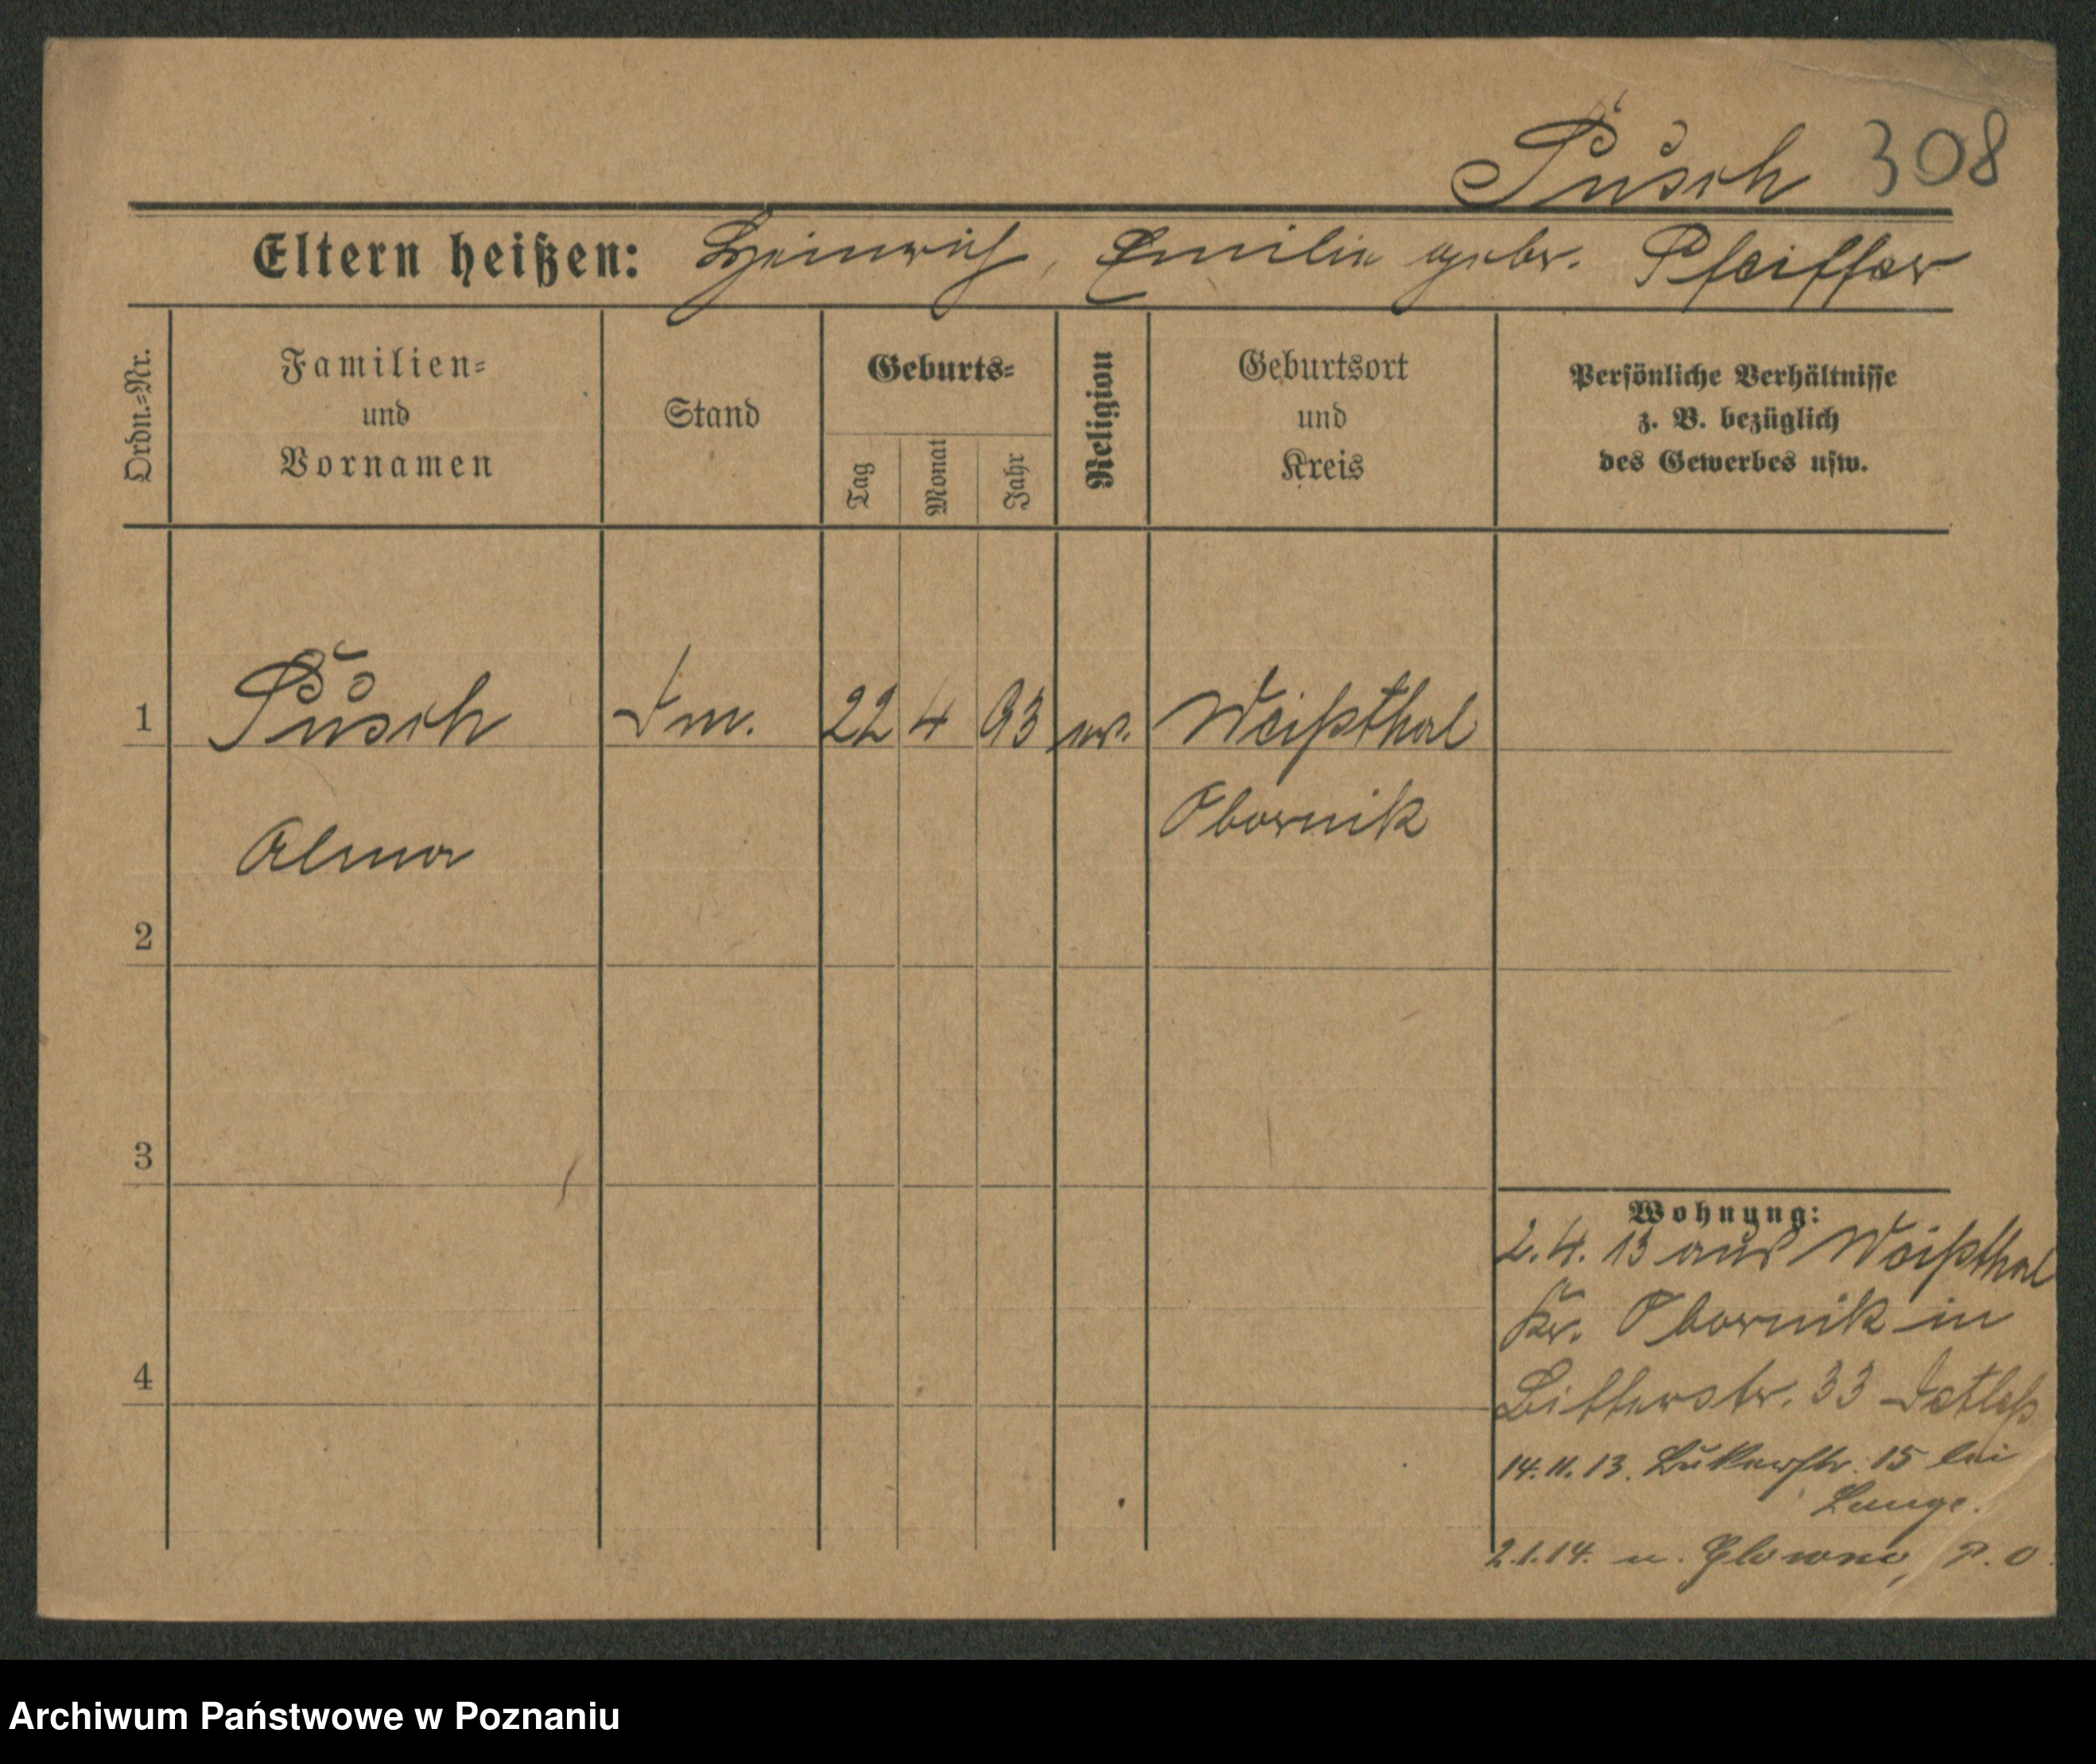 Pusch 308
Eltern heißen: Heinrich, Emilie gebr. Pfeiffer
Ordn.=Nr.
Familien= und Vornamen
Stand
Geburts=
Tag
Monat
Jahr
Religion
Geburtsort und Kreis
Persönliche Verhältnisse z. B. bezüglich des Gewerbes usw.
1 Pusch 22 4 93 ev. Weißthal
Obornik
Alma
2
3
4
Wohnung:
2.4.13 aus Weißthal
Kr. Obornik in
33
14.11.13. 15 bei
Lange.
2.1.14. n. Glowno, P. O.
Archiwum Państwowe w Poznaniu